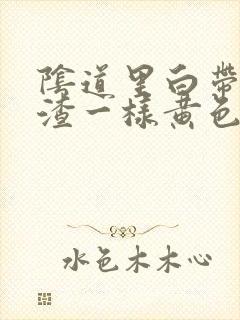 陰道里白帶
渣一樣黃色
水色木木心